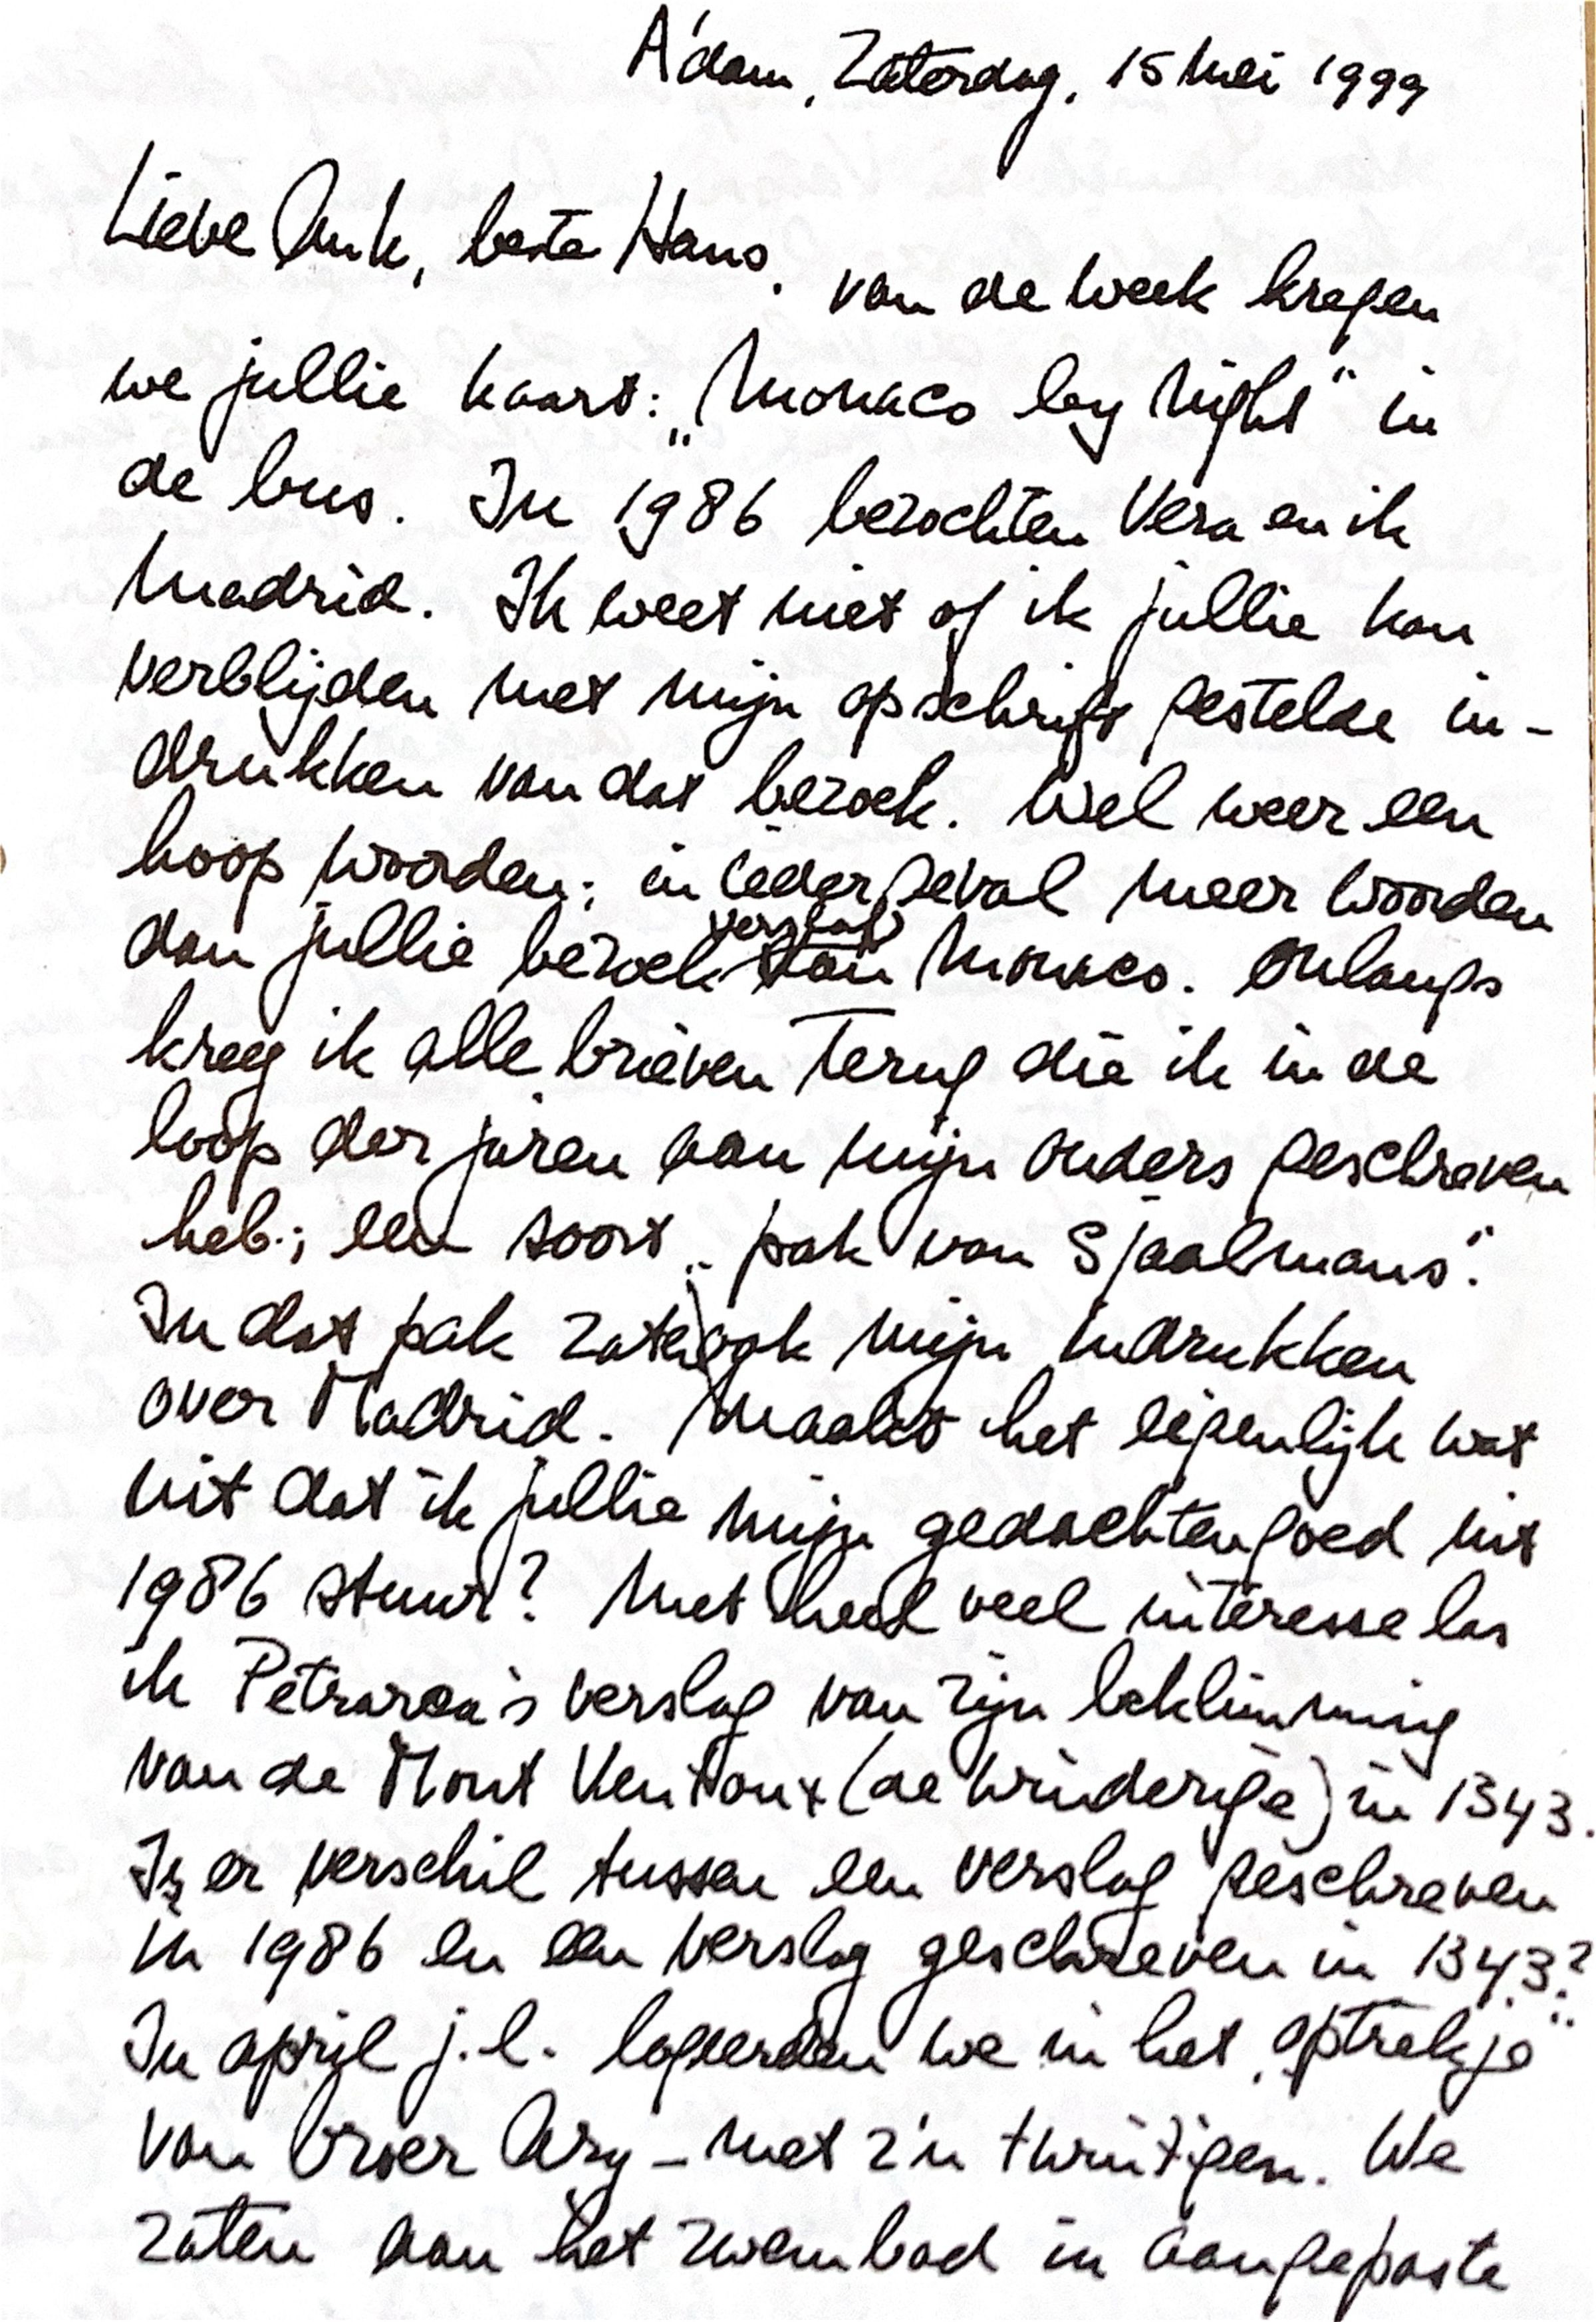 A'dam, Zaterdag, 15 Mei 1999
Lieve Ank, beste Hans,
van de week kregen
we jullie kaart: „Monaco by Night" in
de bus. In 1986 bezochten Vera en ik
Madrid. Ik weet niet of ik jullie kan
verblijden met mijn op schrift gestelde in-
drukken van dat bezoek. Wel weer een
hoop woorden; in ieder geval meer woorden
dan jullie bezoek verslag van Monaco. Onlangs
kreeg ik alle brieven terug die ik in de
loop der jaren aan mijn ouders geschreven
heb; een soort „pak van Sjaalmans".
In dat pak zaten ook mijn indrukken
over Madrid. Maakt het eigenlijk wat
uit dat ik jullie mijn gedachtengoed uit
1986 stuur? Met heel veel interesse las
ik Petrarca's verslag van zijn beklimming
van de Mont Ventoux (de winderige) in 1343.
Is er verschil tussen een verslag geschreven
in 1986 en een verslag geschreven in 1343?
In april j.l. logeerden we in het „optrekje"
van broer Ary – met z'n twintigen. We
zaten aan het zwembad in aangepaste